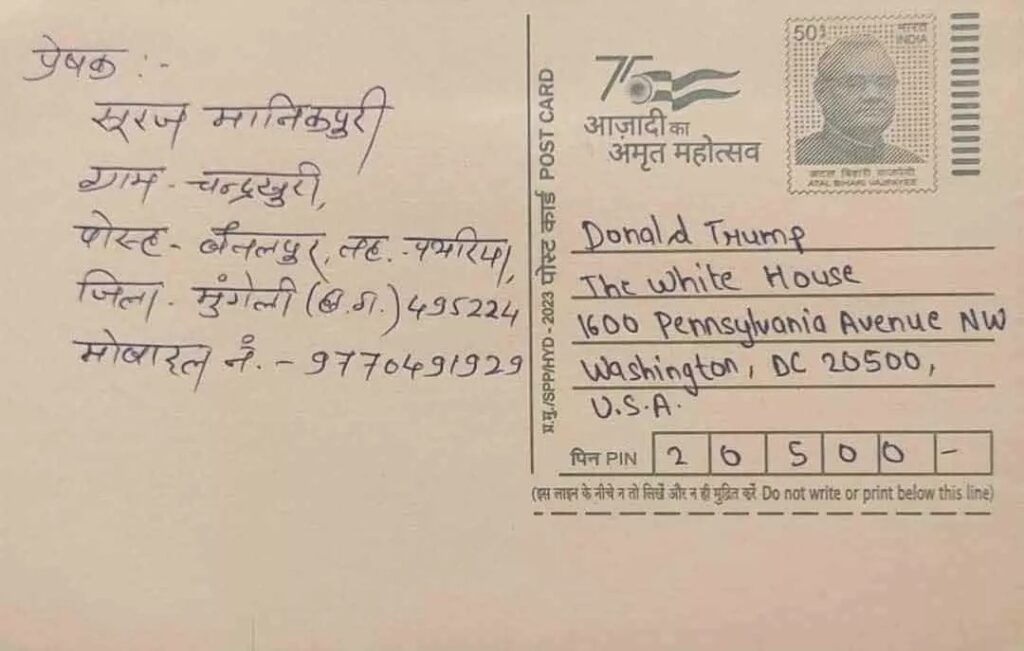 प्रेषक :-
सूरज मानिकपुरी
ग्राम - चन्द्रखुरी,
पोस्ट - बैतलपुर, तह. - पथरिया,
जिला - मुंगेली (छ.ग.) 495224
मोबाइल नं. - 9770491929
प्र.मु./SPP/HYD - 2023 पोस्ट कार्ड POST CARD
75
आज़ादी का
अमृत महोत्सव
50 भारत
INDIA
अटल बिहारी वाजपेयी
ATAL BIHARI VAJPAYEE
Donald Trump
The White House
1600 Pennsylvania Avenue NW
Washington, DC 20500,
U.S.A.
पिन PIN 2 0 5 0 0 -
(इस लाइन के नीचे न तो लिखें और न ही मुद्रित करें Do not write or print below this line)